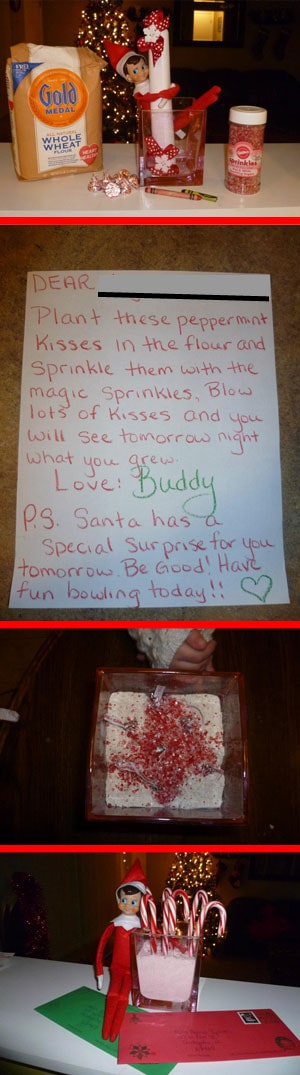 Gold
MEDAL
ALL NATURAL
WHOLE
WHEAT
FLOUR
Wilton
sprinkles
DEAR
Plant these peppermint
Kisses in the flour and
Sprinkle them with the
magic sprinkles. Blow
lots of kisses and you
will see tomorrow night
what you grew.
Love: Buddy
P.S. Santa has a
Special Surprise for you
tomorrow. Be Good! Have
fun bowling today!!